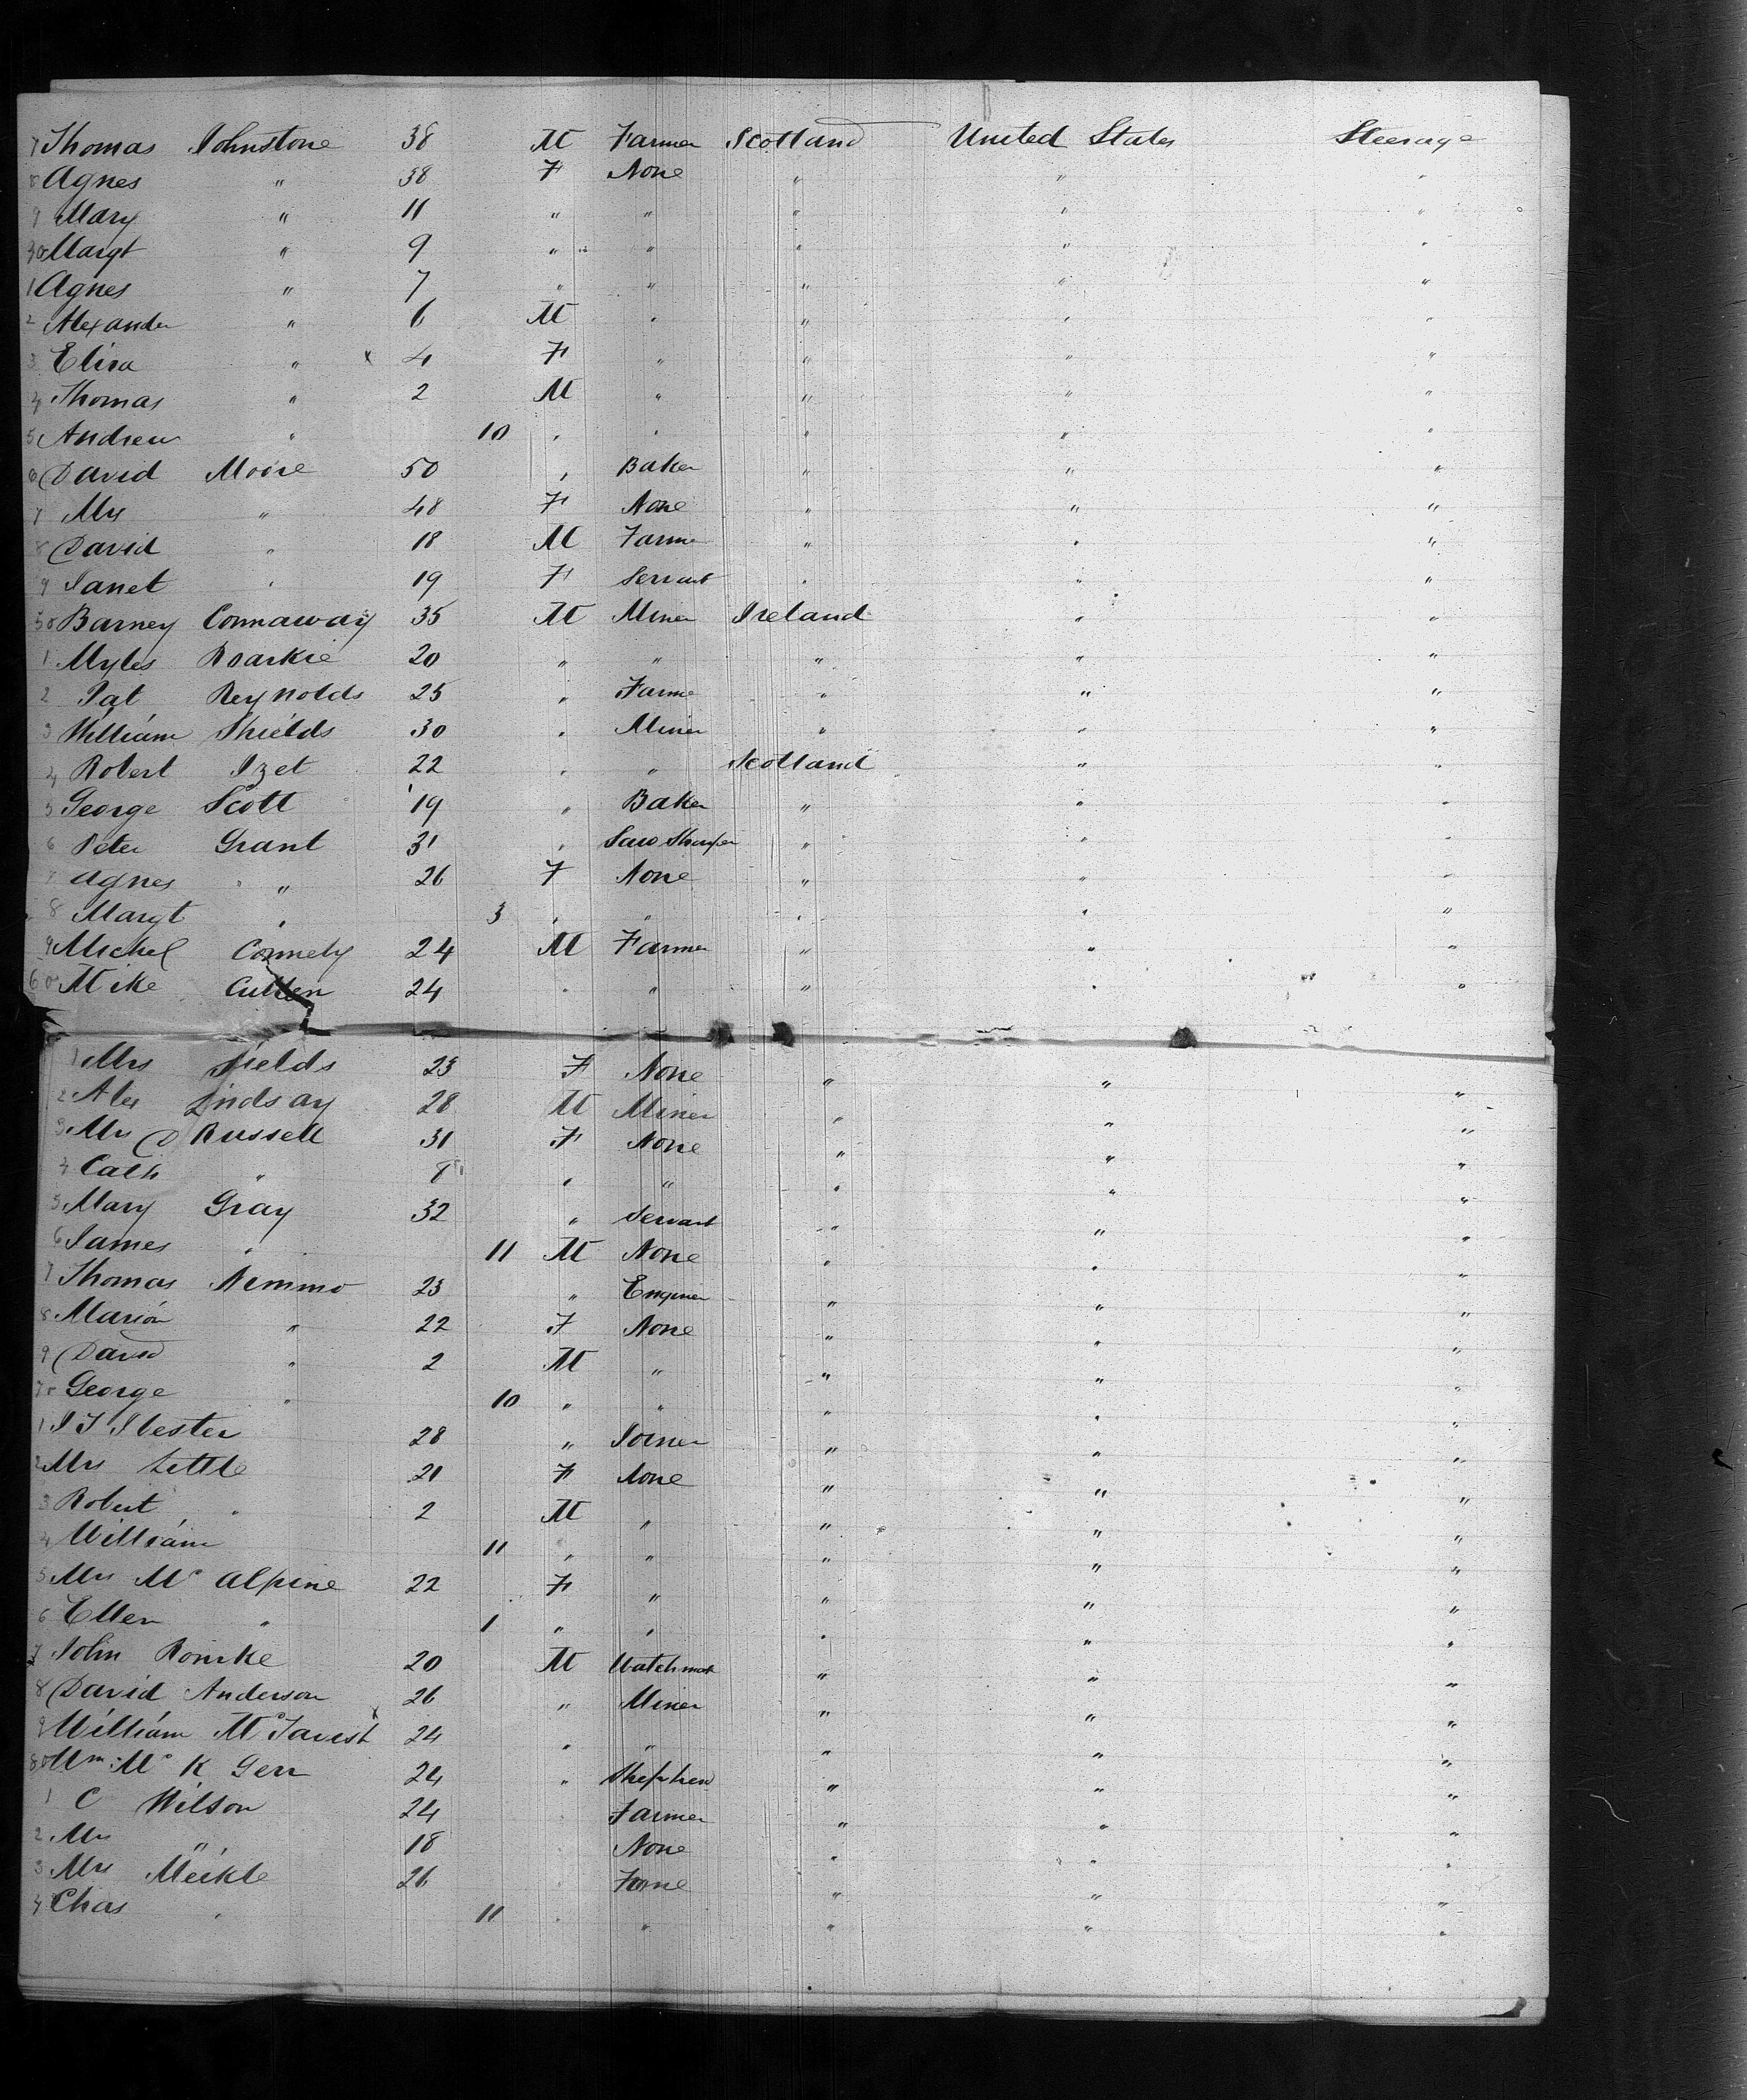 7 Thomas Johnstone 38 M Farmer Scotland United States Steerage
8 Agnes " 38 F None " " "
9 Mary " 11 " " " " "
30 Margt " 9 " " " " "
1 Agnes " 7 " " " " "
2 Alexander " 6 M " " " "
3 Eliza " x 4 F " " " "
4 Thomas " 2 M " " " "
5 Andrew " 10 " " " " "
6 David Moore 50 " Baker " " "
7 Mrs " 48 F None " " "
8 David " 18 M Farmer " " "
9 Janet " 19 F Servant " " "
50 Barney Connaway 35 M Miner Ireland " "
1 Myles Roarkie 20 " " " " "
2 Pat Reynolds 25 " Farmer " " "
3 William Shields 30 " Miner " " "
4 Robert Izet 22 " " Scotland " "
5 George Scott 19 " Baker " " "
6 Peter Grant 31 " Saw Sharper " " "
7 Agnes " 26 F None " " "
8 Margt " 3 " " " " "
9 Michel Connely 24 M Farmer " " "
60 Mike Cullen 24 " " " " "
1 Mrs Fields 23 F None " " "
2 Alex Lindsay 28 M Miner " " "
3 Mrs D Russell 31 F None " " "
4 Cath " 8 " " " " "
5 Mary Gray 32 " Servant " " "
6 James " 11 M None " " "
7 Thomas Nemmo 23 " Enginer " " "
8 Marion " 22 F None " " "
9 David " 2 M " " " "
70 George " 10 " " " " "
1 I T Ilester 28 " Joiner " " "
2 Mrs Little 21 F None " " "
3 Robert " 2 M " " " "
4 William 11 " " " " "
5 Mrs Mc Alpine 22 F " " " "
6 Ellen " 1 " " " " "
7 John Rourke 20 M Watchmak " " "
8 David Anderson 26 " Miner " " "
9 William McTavish 24 " " " " "
80 Wm Mc K Gerr 24 " Shepherd " " "
1 C Wilson 24 " Farmer " " "
2 Mrs " 18 " None " " "
3 Mrs Meikle 26 " None " " "
4 Chas " 11 " " " " "